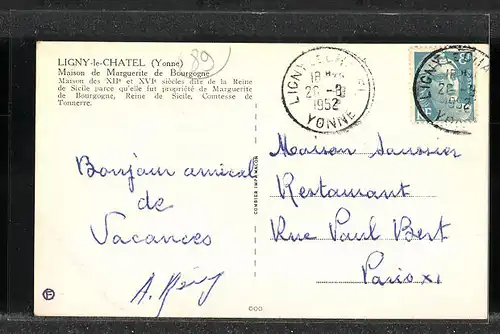 LIGNY-le-CHATEL (Yonne)
Maison de Marguerite de Bourgogne
Maison des XIIe et XVIe siècles dite de la Reine
de Sicile parce qu'elle fut propriété de Marguerite
de Bourgogne, Reine de Sicile, Comtesse de
Tonnerre.
89
LIGNY LE CHATEL
18H
26 -8
1952
YONNE
LIGNY CHA
18
26 -8
1952
YONNE
Bonjour amical
de
Vacances
A.
COMBIER IMP. MACON
Maison Saussier
Restaurant
Rue Paul Bert
Paris XI
COO